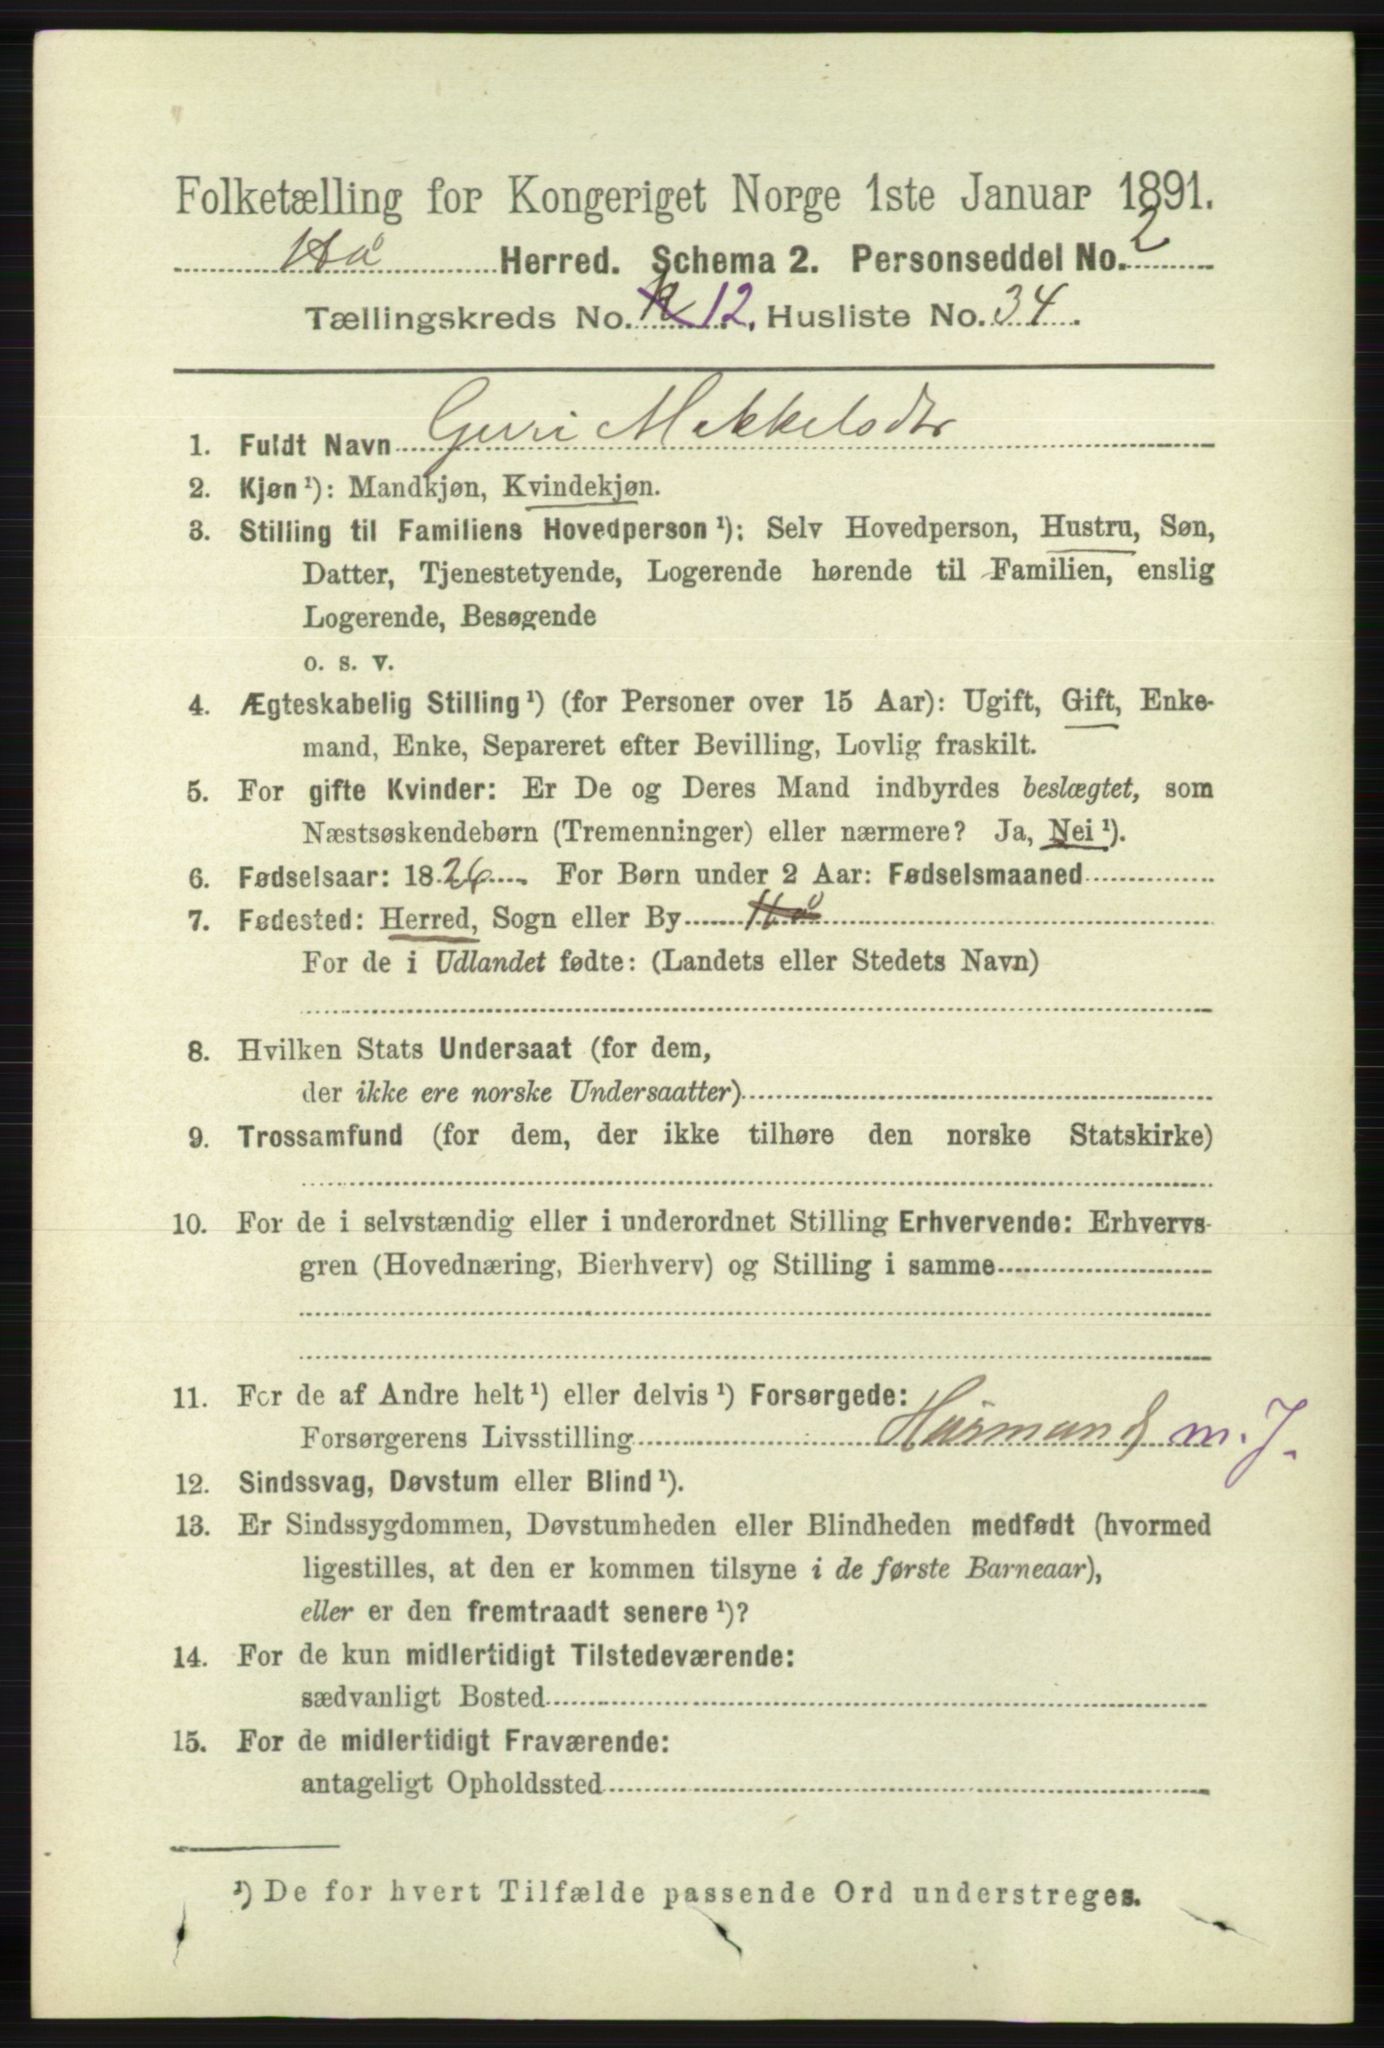 Folketælling for Kongeriget Norge 1ste Januar 1891.
Hå Herred. Schema 2. Personseddel No. 2
Tællingskreds No. 12. Husliste No. 34.
1. Fuldt Navn Guri Mikkelsdtr
2. Kjøn ¹): Mandkjøn, Kvindekjøn.
3. Stilling til Familiens Hovedperson ¹): Selv Hovedperson, Hustru, Søn,
Datter, Tjenestetyende, Logerende hørende til Familien, enslig
Logerende, Besøgende
o. s. v.
4. Ægteskabelig Stilling ¹) (for Personer over 15 Aar): Ugift, Gift, Enke-
mand, Enke, Separeret efter Bevilling, Lovlig fraskilt.
5. For gifte Kvinder: Er De og Deres Mand indbyrdes beslægtet, som
Næstsøskendebørn (Tremenninger) eller nærmere? Ja, Nei ¹).
6. Fødselsaar: 1826. For Børn under 2 Aar: Fødselsmaaned
7. Fødested: Herred, Sogn eller By Hå
For de i Udlandet fødte: (Landets eller Stedets Navn)
8. Hvilken Stats Undersaat (for dem,
der ikke ere norske Undersaatter)
9. Trossamfund (for dem, der ikke tilhøre den norske Statskirke)
10. For de i selvstændig eller i underordnet Stilling Erhvervende: Erhvervs-
gren (Hovednæring, Bierhverv) og Stilling i samme
11. For de af Andre helt ¹) eller delvis ¹) Forsørgede:
Forsørgerens Livsstilling Husmand m. J.
12. Sindssvag, Døvstum eller Blind ¹).
13. Er Sindssygdommen, Døvstumheden eller Blindheden medfødt (hvormed
ligestilles, at den er kommen tilsyne i de første Barneaar),
eller er den fremtraadt senere ¹)?
14. For de kun midlertidigt Tilstedeværende:
sædvanligt Bosted
15. For de midlertidigt Fraværende:
antageligt Opholdssted
¹) De for hvert Tilfælde passende Ord understreges.